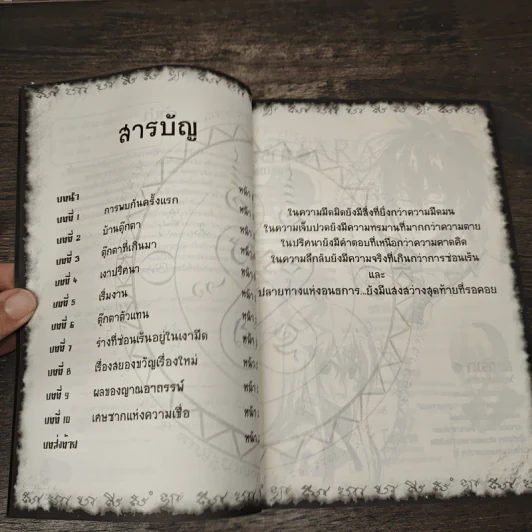 สารบัญ
บทนำ
บทที่ 1 การพบกันครั้งแรก หน้า
บทที่ 2 บ้านตุ๊กตา หน้า
บทที่ 3 ตุ๊กตาที่เกินมา หน้า
บทที่ 4 เงาปริศนา หน้า
บทที่ 5 เริ่มงาน หน้า
บทที่ 6 ตุ๊กตาตัวแทน หน้า
บทที่ 7 ร่างที่ซ่อนเร้นอยู่ในเงามืด หน้า
บทที่ 8 เรื่องสยองขวัญเรื่องใหม่ หน้า
บทที่ 9 ผลของญาณอาถรรพ์ หน้า
บทที่ 10 เศษซากแห่งความเชื่อ หน้า
บทส่งท้าย หน้า
ในความมืดมิดยังมีสิ่งที่ยิ่งกว่าความมืดมน
ในความเจ็บปวดยังมีความทรมานที่มากกว่าความตาย
ในปริศนายังมีคำตอบที่เหนือกว่าความคาดคิด
ในความลึกลับยังมีความจริงที่เกินกว่าการซ่อนเร้น
และ
ปลายทางแห่งอนธการ...ยังมีแสงสว่างสุดท้ายที่รอคอย